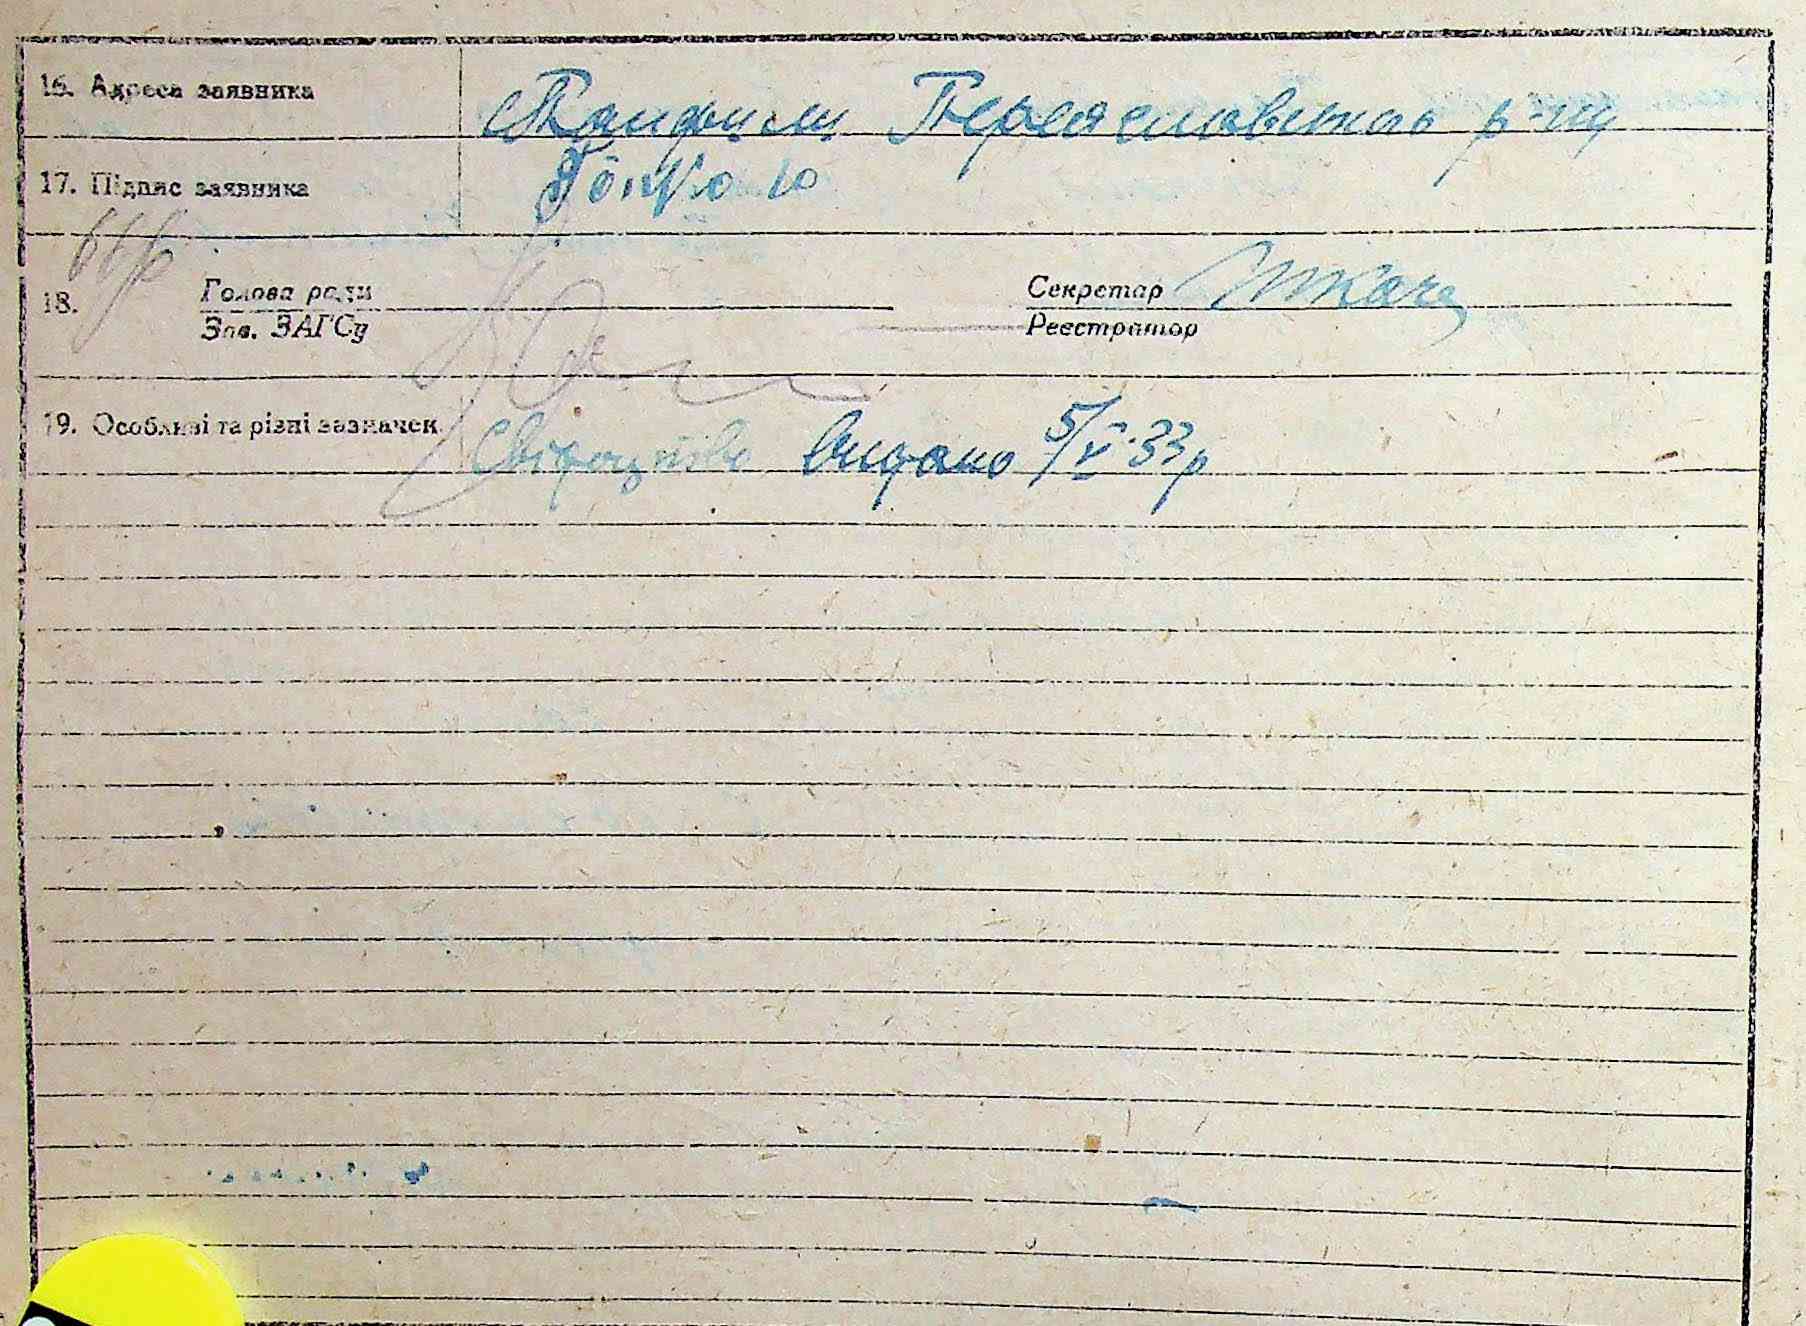 16. Адреса заявника с Пандими Переяславського р-ну
17. Підпис заявника
18. Голова ради Секретар Ткач
Зав. ЗАГСу Реєстратор
19. Особливі та різні зазначен. Свідоцтво видано 5/V-33р